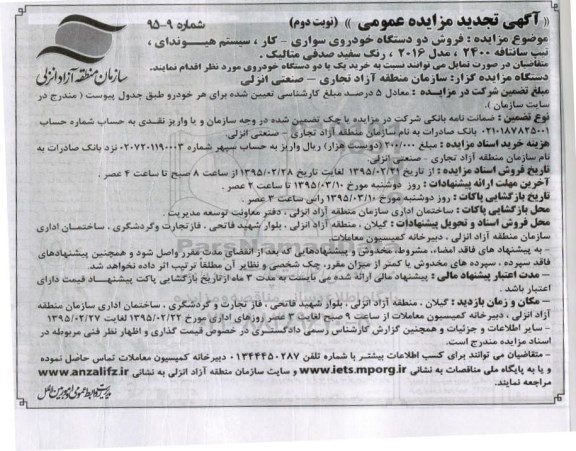 « آگهی تجدید مزایده عمومی » (نوبت دوم)
شماره ۹-۹۵
سازمان منطقه آزاد انزلی
موضوع مزایده : فروش دو دستگاه خودروی سواری - کار ، سیستم هیوندای ،
تیپ سانتافه ۲۴۰۰ ، مدل ۲۰۱۶ ، رنگ سفید صدفی متالیک .
متقاضیان در صورت تمایل می توانند نسبت به خرید یک یا دو دستگاه خودروی مورد نظر اقدام نمایند.
دستگاه مزایده گزار: سازمان منطقه آزاد تجاری – صنعتی انزلی
مبلغ تضمین شرکت در مزایده : معادل ۵ درصد مبلغ کارشناسی تعیین شده برای هر خودرو طبق جدول پیوست ( مندرج در
سایت سازمان ).
نوع تضمین : ضمانت نامه بانکی شرکت در مزایده یا چک تضمین شده در وجه سازمان و یا واریز نقدی به حساب شماره حساب
۰۲۱۰۱۸۷۸۲۵۰۰۱ بانک صادرات به نام سازمان منطقه آزاد تجاری - صنعتی انزلی.
هزینه خرید اسناد مزایده : مبلغ ۲۰۰/۰۰۰ (دویست هزار) ریال واریز به حساب سپهر شماره ۰۲۰۷۲۰۱۱۹۰۰۰۳ نزد بانک صادرات به
نام سازمان منطقه آزاد تجاری - صنعتی انزلی.
تاریخ فروش اسناد مزایده : از تاریخ ۱۳۹۵/۰۲/۲۱ لغایت تاریخ ۱۳۹۵/۰۲/۲۸ از ساعت ۸ صبح تا ساعت ۴ عصر .
آخرین مهلت ارائه پیشنهادات : روز دوشنبه مورخ ۱۳۹۵/۰۳/۱۰ تا ساعت ۲ عصر .
تاریخ بازگشایی پاکات : روز دوشنبه مورخ ۱۳۹۵/۰۳/۱۰ راس ساعت ۳ عصر .
محل بازگشایی پاکات : ساختمان اداری سازمان منطقه آزاد انزلی ، دفتر معاونت توسعه مدیریت .
محل فروش اسناد و تحویل پیشنهادات : گیلان ، منطقه آزاد انزلی ، بلوار شهید فاتحی ، فاز تجارت وگردشگری ، ساختمان اداری
سازمان منطقه آزاد انزلی ، دبیرخانه کمیسیون معاملات.
- به پیشنهاد های فاقد امضاء، مشروط، مخدوش و پیشنهادهایی که بعد از انقضای مدت مقرر واصل شود و همچنین پیشنهادهای
فاقد سپرده ، سپرده های مخدوش یا کمتر از میزان مقرر، چک شخصی و نظایر آن مطلقاً ترتیب اثر داده نخواهد شد.
– مدت اعتبار پیشنهاد مالی : پیشنهاد مالی ارائه شده می بایست به مدت ۳ ماه از تاریخ بازگشایی پاکت پیشنهاد قیمت دارای
اعتبار باشد .
– مکان و زمان بازدید : گیلان ، منطقه آزاد انزلی ، بلوار شهید فاتحی ، فاز تجارت و گردشگری ، ساختمان اداری سازمان منطقه
آزاد انزلی ، دبیرخانه کمیسیون معاملات از ساعت ۹ صبح لغایت ۳ عصر روزهای اداری مورخ ۱۳۹۵/۰۲/۲۲ لغایت ۱۳۹۵/۰۲/۲۷
- سایر اطلاعات و جزئیات و همچنین گزارش کارشناس رسمی دادگستری در خصوص قیمت گذاری و اظهار نظر فنی مربوطه در
اسناد مزایده مندرج است.
- متقاضیان می توانند برای کسب اطلاعات بیشتر با شماره تلفن ۰۱۳۴۴۴۵۰۲۸۷ دبیرخانه کمیسیون معاملات تماس حاصل نموده
و یا به پایگاه ملی مناقصات به نشانی www.iets.mporg.ir و سایت سازمان منطقه آزاد انزلی به نشانی www.anzalifz.ir
مراجعه نمایند.